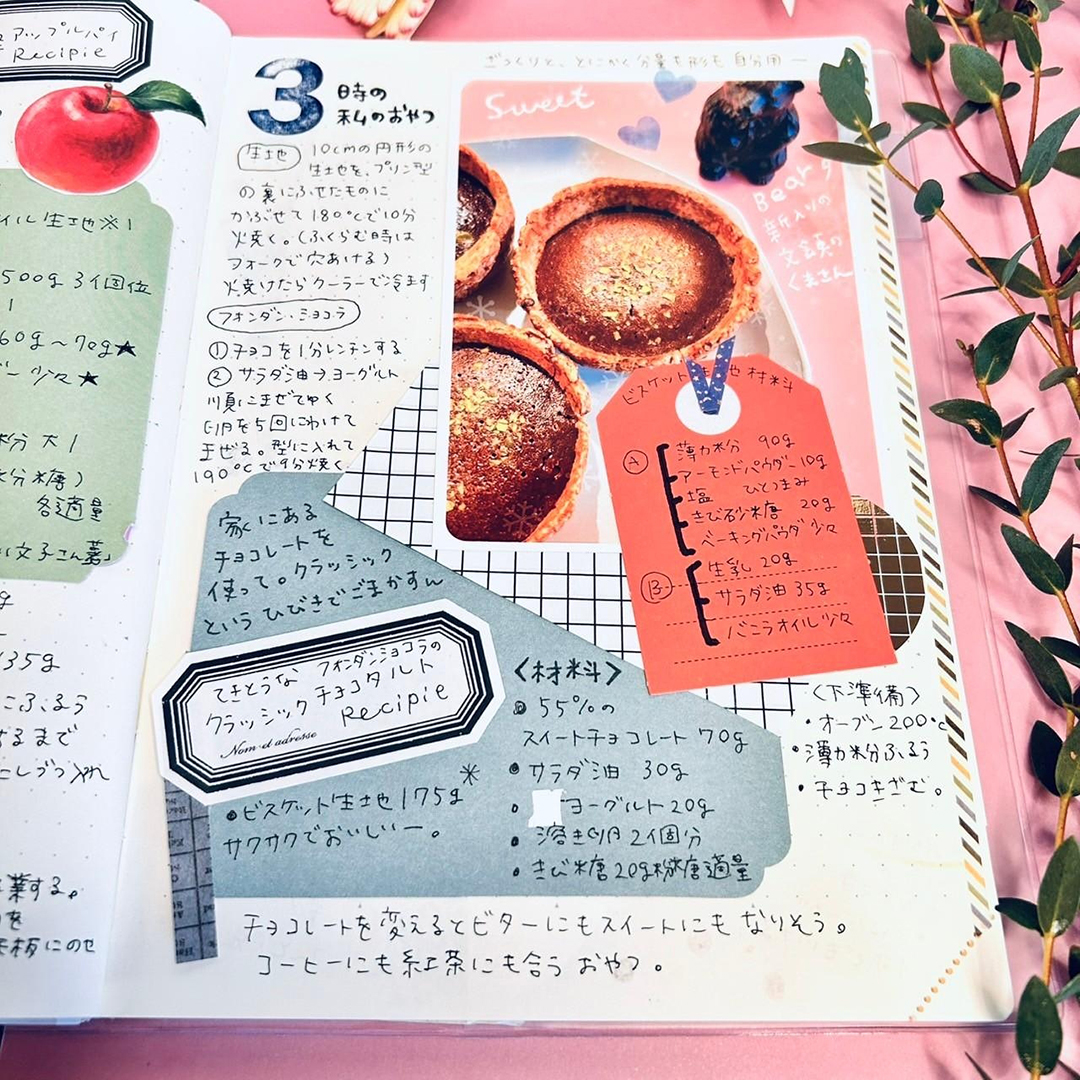 アップルパイ
Recipie
イル生地※1
500g 3個位
1
60g〜70g★
少々★
粉 大1
粉糖)
各適量
文子さん著」
35g
こふるう
るまで
業する。
板にのせ
ざっくりと、とにかく分量も形も自分用 ―
3時の
私のおやつ
生地 10cmの円形の
生地を、プリン型
の裏にふせたものに
かぶせて180℃で10分
火焼く。(ふくらむ時は
フォークで穴あける)
火焼けたらクーラーで冷ます
フォンダン・ショコラ
①チョコを1分レンチンする
②サラダ油→ヨーグルト
順にまぜてゆく
卵を5回にわけて
まぜる。型に入れて
190℃で9分焼く
Sweet
Bear's
新入りの
文鎮の
くまさん
ビスケット生地材料
Ⓐ 薄力粉 90g
アーモンドパウダー10g
塩 ひとつまみ
きび砂糖 20g
ベーキングパウダ少々
Ⓑ 生乳 20g
サラダ油 35g
バニラオイル少々
家にある
チョコレートを
使って。クラッシック
というひびきでごまかすん
てきとうな フォンダンショコラの
クラッシック チョコタルト
Recipie
Nom et adresse
•ビスケット生地175g*
サクサクでおいしいー。
〈材料〉
• 55%の
スイートチョコレート 70g
•サラダ油 30g
• ヨーグルト20g
•溶き卵2個分
•きび糖20g粉糖適量
〈下準備〉
•オーブン200℃
•薄力粉ふるう
•チョコきざむ。
チョコレートを変えるとビターにもスイートにもなりそう。
コーヒーにも紅茶にも合うおやつ。